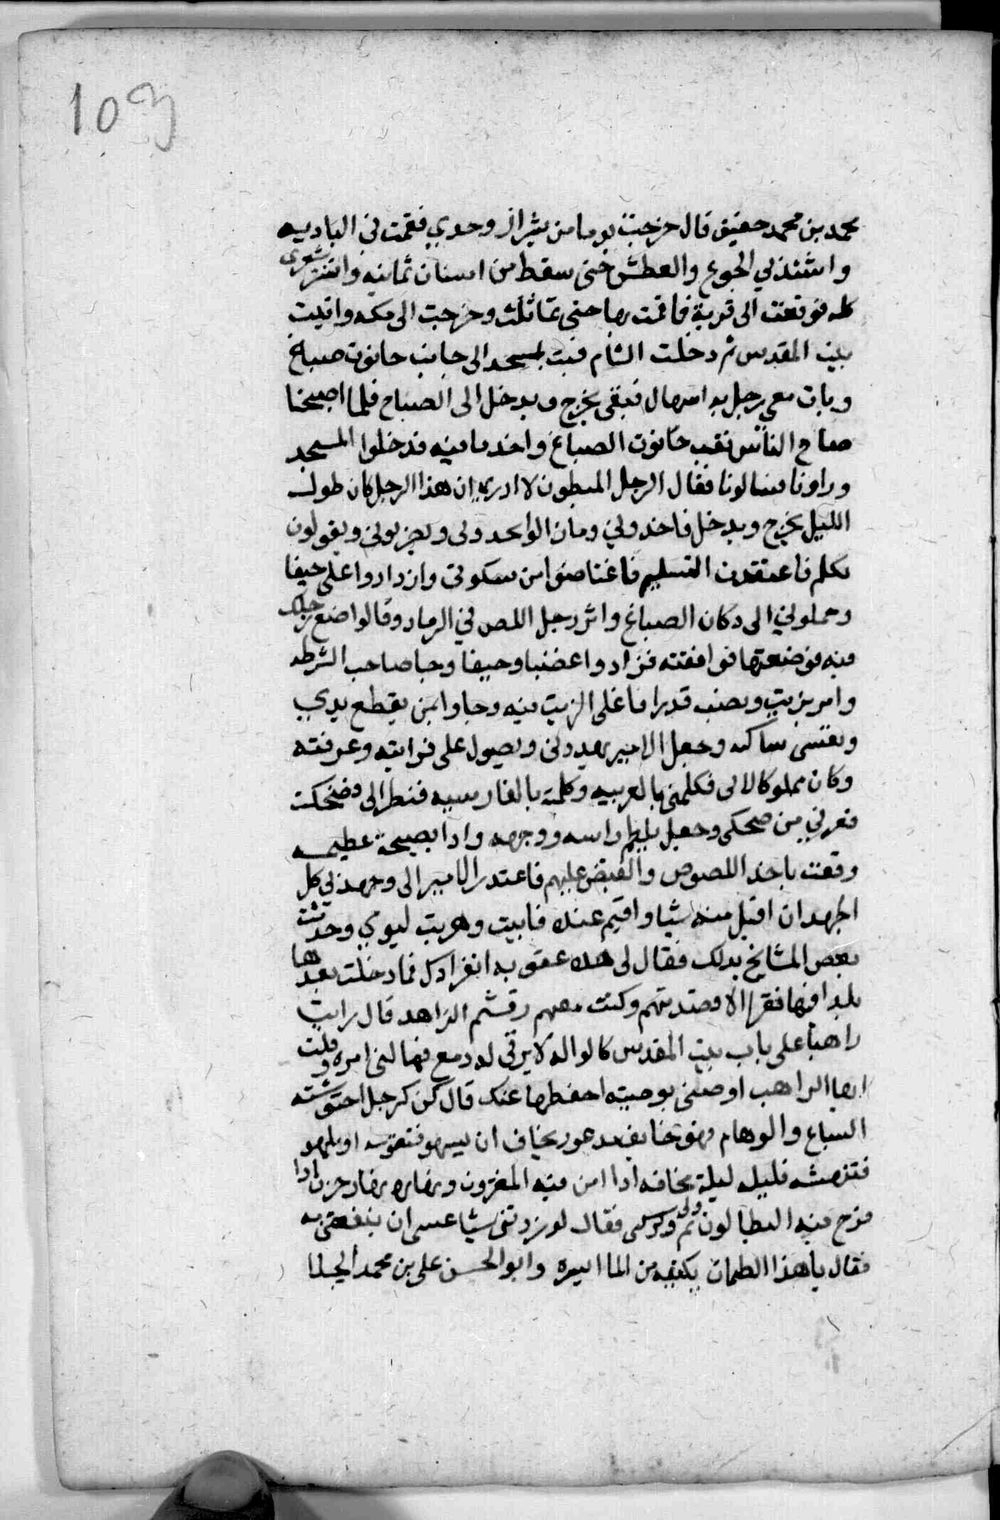 103
محمد بن محمد حفيف قال خرجت يوما من شيراز وحدي فقمت في البادیه
واشتد بي الجوع والعطش حتى سقط من اسنان ثمانيه وانتثر شعري
كله فوقعت الى قرية فاقمت بها حتى تماثلث وخرجت الى مكه واتيت
بيت المقدس ثم دخلت الشام فبت بمسجد الى جانب حانوت صباغ
وبات معي رجل به اسهال فبقى يخرج ويدخل الى الصباح فلما اصبحنا
صاح الناس نقب حانوت الصباغ واخد ما فيه فدخلوا المسجد
وراونا فسالونا فقال الرجل المبطون لا ادري ان هذا الرجل كان طول
الليل يخرج ويدخل فاخدوني ومان الواىحدونى وىضربونى ويقولون
تكلم فاعتقدت التسليم فاغتاضوا من سكوتى وازدادوا على حيفا
وحملوني الى دكان الصباغ واثر رجل اللص في الرماد وقالوا ضع رجلك
فيه فوضعتها فوافقته فزادوا غضبا وحيفا وجا صاحب الشرطه
وامر بزيت ونصب قدرا فاغلى الزيت فيه وجاوا بمن يقطع يدي
ونفسى ساكنه وجعل الامير يهددنى ويصول على فرايته وعرفته
وكان مملوكا لابى فكلمنى بالعربيه وكلمته بالفارسيه فنظر الى وضحكت
فعرفني من ضحكى وجعل يلطم راسه ووجهه وادا بصيحة عظيمه
وقعت باخد اللصوص والقبض عليهم فاعتدر الامير الى وجهد بي كل
الجهد ان اقبل منه شيا واقيم عنده فابيت وهربت ليومي وحدثت
بعض المشائخ بدلك فقال لى هده عقوبه انفرادك فما دخلت بعدها
بلدا فيها فقرا الا قصدتهم وكنت معهم قثم الزاهد قال رايت
راهبا على باب بيت المقدس كالواله لا يرقى له دمع فهالنى امره وقلت
ايها الراهب اوصنى بوصيته احفظها عنك قال كن كرجل احتوشته
السباع والوهام فهو خايف مدعور يخاف ان يسهو فتفترسه او يلهو
فتنهشه فليله ليلة مخافه ادا امن فيه المغترون ونهاره نهار حزن ادا
فرح فيه البطالون ثم ولى وتركنى فقال لو زدتنى شيا عسى ان ينفعنى به
فقال يا هذا الظمان يكفيه من الما ايسره وابو الحسن على بن محمد الجيلا